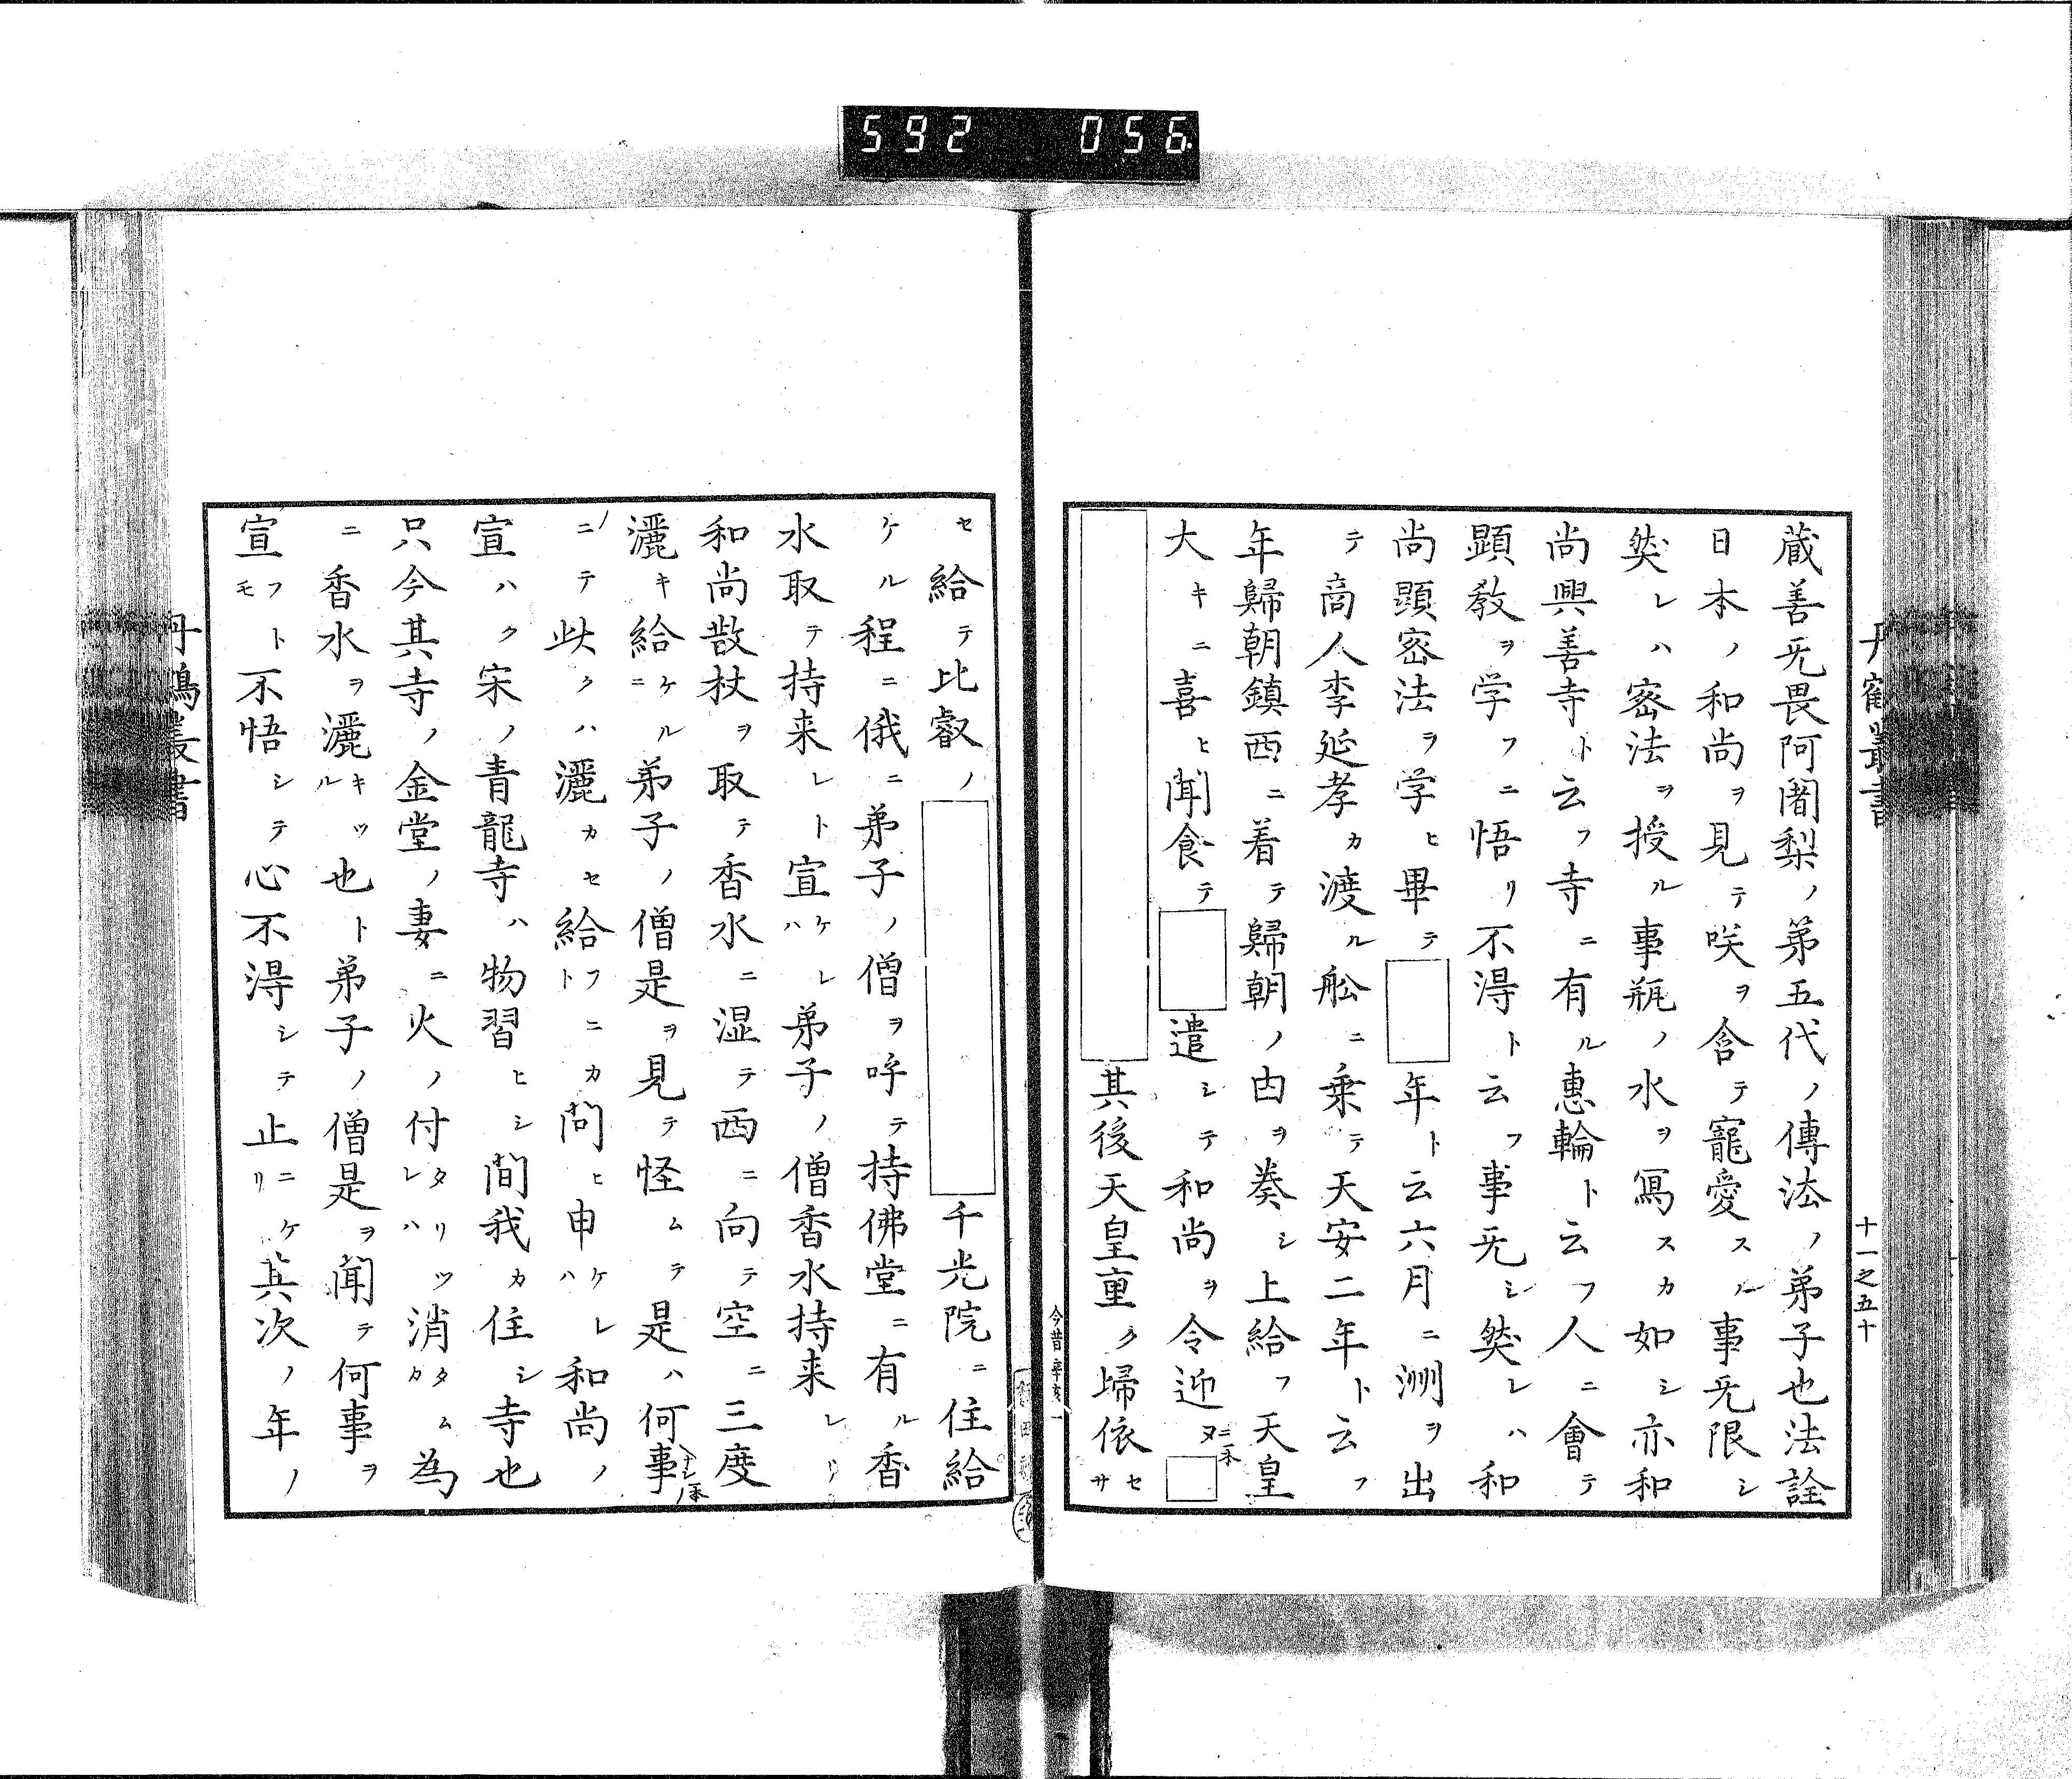 592 056
丹鶴叢書
十一之五十
蔵善旡畏阿闍梨ノ第五代ノ傳法ノ弟子也法詮
日本ノ和尚ヲ見テ咲ヲ含テ寵愛スル事旡限シ
然レハ密法ヲ授ル事瓶ノ水ヲ寫スカ如シ亦和
尚興善寺ト云フ寺ニ有ル惠輪ト云フ人ニ會テ
顕教ヲ学フニ悟リ不得ト云フ事旡シ然レハ和
尚顕密法ヲ学ヒ畢テ□年ト云六月ニ洲ヲ出
テ商人李延孝カ渡ル舩ニ乗テ天安二年ト云フ
年歸朝鎮西ニ着テ歸朝ノ由ヲ奏シ上給フ天皇
大キニ喜ヒ聞食テ□遣シテ和尚ヲ令迎ヌニ本□
□其後天皇重ク歸依セサ
今昔
セ給テ比叡ノ□千光院ニ住給
ケル程ニ俄ニ弟子ノ僧ヲ呼テ持佛堂ニ有ル香
水取テ持来レト宣ケレハ弟子ノ僧香水持来レリ
和尚散杖ヲ取テ香水ニ湿テ西ニ向テ空ニ三度
灑キ給ケルニ弟子ノ僧是ヲ見テ怪ムテ是ハ何事
ニテ此クハ灑カセ給フニカト問ヒ申ケレハ和尚ノ
宣ハク宋ノ青龍寺ハ物習ヒシ間我カ住シ寺也
只今其寺ノ金堂ノ妻ニ火ノ付タリツレハ消タムカ為
ニ香水ヲ灑キツル也ト弟子ノ僧是ヲ聞テ何事ヲ
宣フトモ不悟シテ心不得シテ止ニケリ其次ノ年ノ
丹鶴叢書